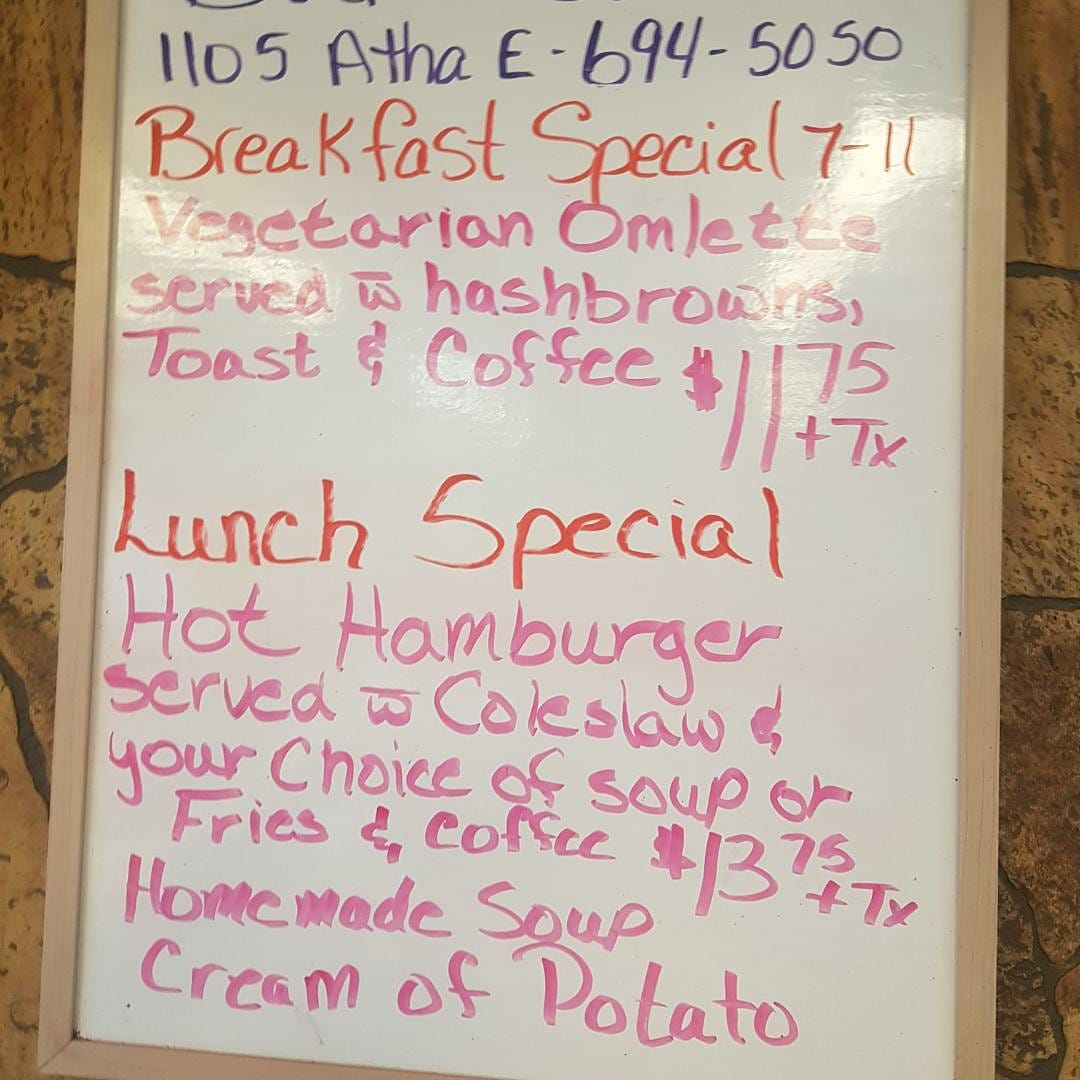 1105 Atha E - 694-5050
Breakfast Special 7-11
Vegetarian Omlette
served w̅ hashbrowns,
Toast & Coffee $11 75
+ Tx
Lunch Special
Hot Hamburger
served w̅ Coleslaw &
your Choice of soup or
Fries & Coffee $13 75
+ Tx
Homemade Soup
Cream of Potato